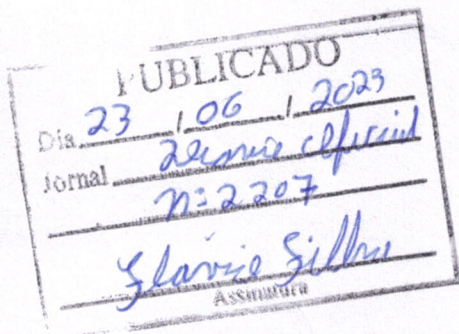 PUBLICADO
Dia 23 / 06 / 2023
Jornal Diário Oficial
nº 2207
Flavia Silva
Assinatura